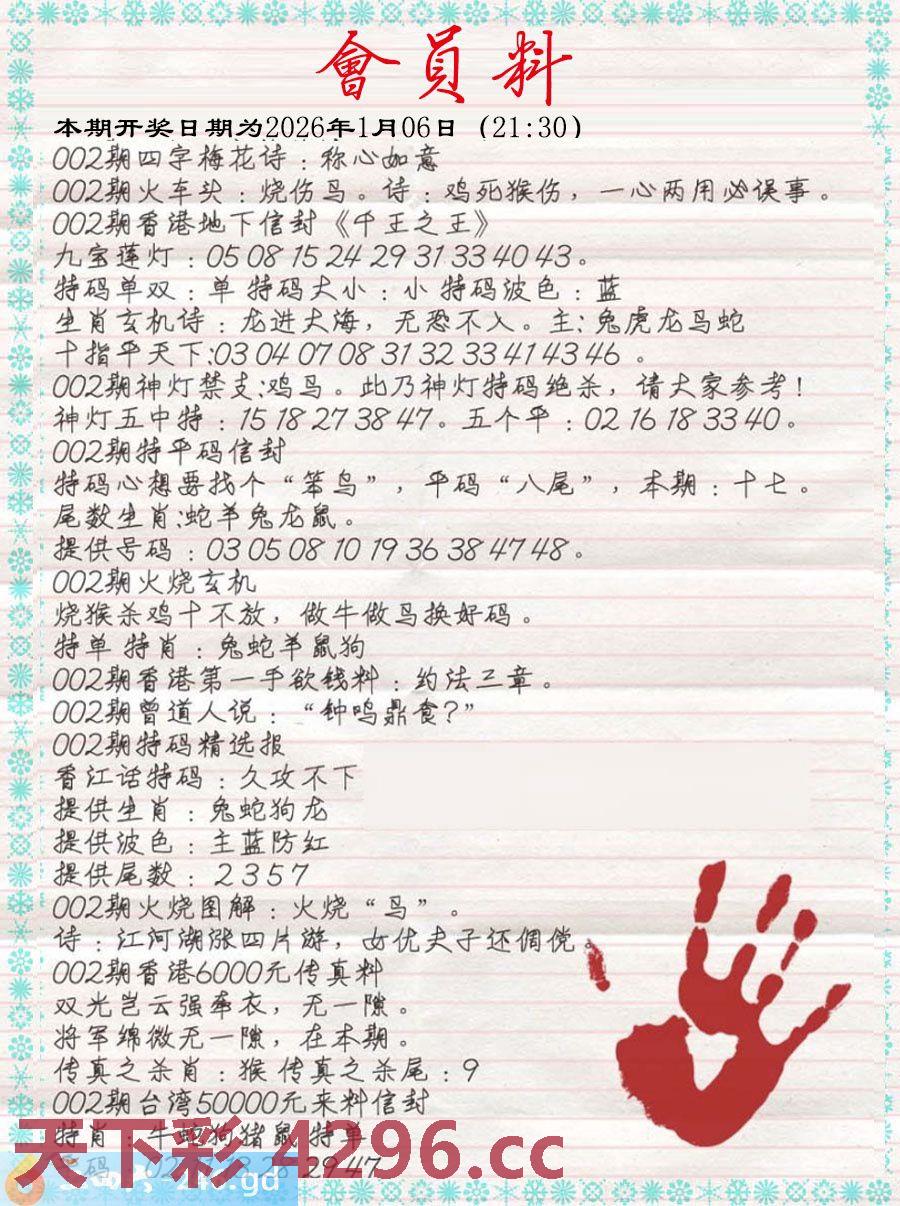 會員料
本期开奖日期为2026年1月06日（21:30）
002期四字梅花诗：称心如意
002期火车头：烧伤鸟。诗：鸡死猴伤，一心两用必误事。
002期香港地下信封《千王之王》
九宝莲灯：05 08 15 24 29 31 33 40 43。
特码单双：单 特码大小：小 特码波色：蓝
生肖玄机诗：龙进大海，无恐不入。主：兔虎龙马蛇
十指平天下:03 04 07 08 31 32 33 41 43 46 。
002期神灯禁支:鸡鸟。此乃神灯特码绝杀，请大家参考！
神灯五中特：15 18 27 38 47。五个平：02 16 18 33 40。
002期特平码信封
特码心想要找个“笨鸟”，平码“八尾”，本期：十七。
尾数生肖:蛇羊兔龙鼠。
提供号码：03 05 08 10 19 36 38 47 48。
002期火烧玄机
烧猴杀鸡十不放，做牛做鸟换好码。
特单 特肖：兔蛇羊鼠狗
002期香港第一手欲钱料：约法三章。
002期曾道人说：“钟鸣鼎食？”
002期特码精选报
香江话特码：久攻不下
提供生肖：兔蛇狗龙
提供波色：主蓝防红
提供尾数：2 3 5 7
002期火烧图解：火烧“鸟”。
诗：江河湖涨四片游，女优夫子还倜傥。
002期香港6000元传真料
双光岂云强牵衣，无一隙。
将军绵微无一隙，在本期。
传真之杀肖：猴 传真之杀尾：9
002期台湾50000元来料信封
特肖：牛蛇狗猪鼠 特单
天下彩 4296.cc
29 47